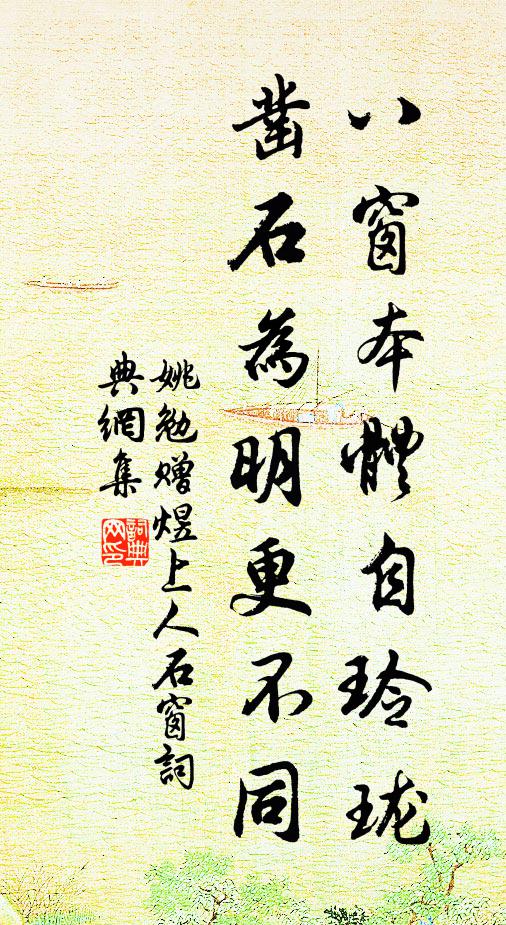 八窗本體自玲瓏
凿石為明更不同
姚勉赠煜上人石窗詞
典網集
詞典網印